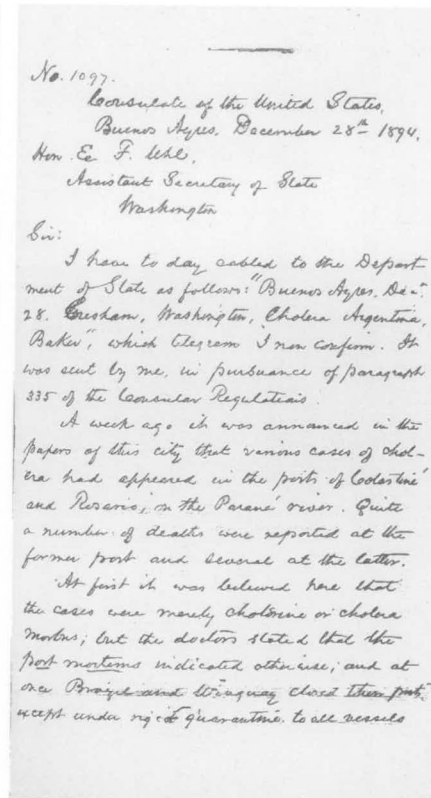 No. 1097.
Consulate of the United States,
Buenos Ayres, December 28th 1894.
Hon. E. F. Uhl,
Assistant Secretary of State
Washington
Sir:
I have to day cabled to the Depart
ment of State as follows: "Buenos Ayres, Dec.
28. Gresham, Washington, Cholera Argentina,
Baker", which telegram I now confirm. It
was sent by me, in pursuance of paragraph
335 of the Consular Regulations.
A week ago it was announced in the
papers of this city that various cases of chol-
era had appeared in the ports of Colastiné
and Rosario, in the Paraná river. Quite
a number of deaths were reported at the
former port and several at the latter.
At first it was believed here that
the cases were merely cholerine or cholera
morbus; but the doctors stated that the
post mortems indicated otherwise; and at
once Brazil and Uruguay closed their ports
except under rigid quarantine to all vessels